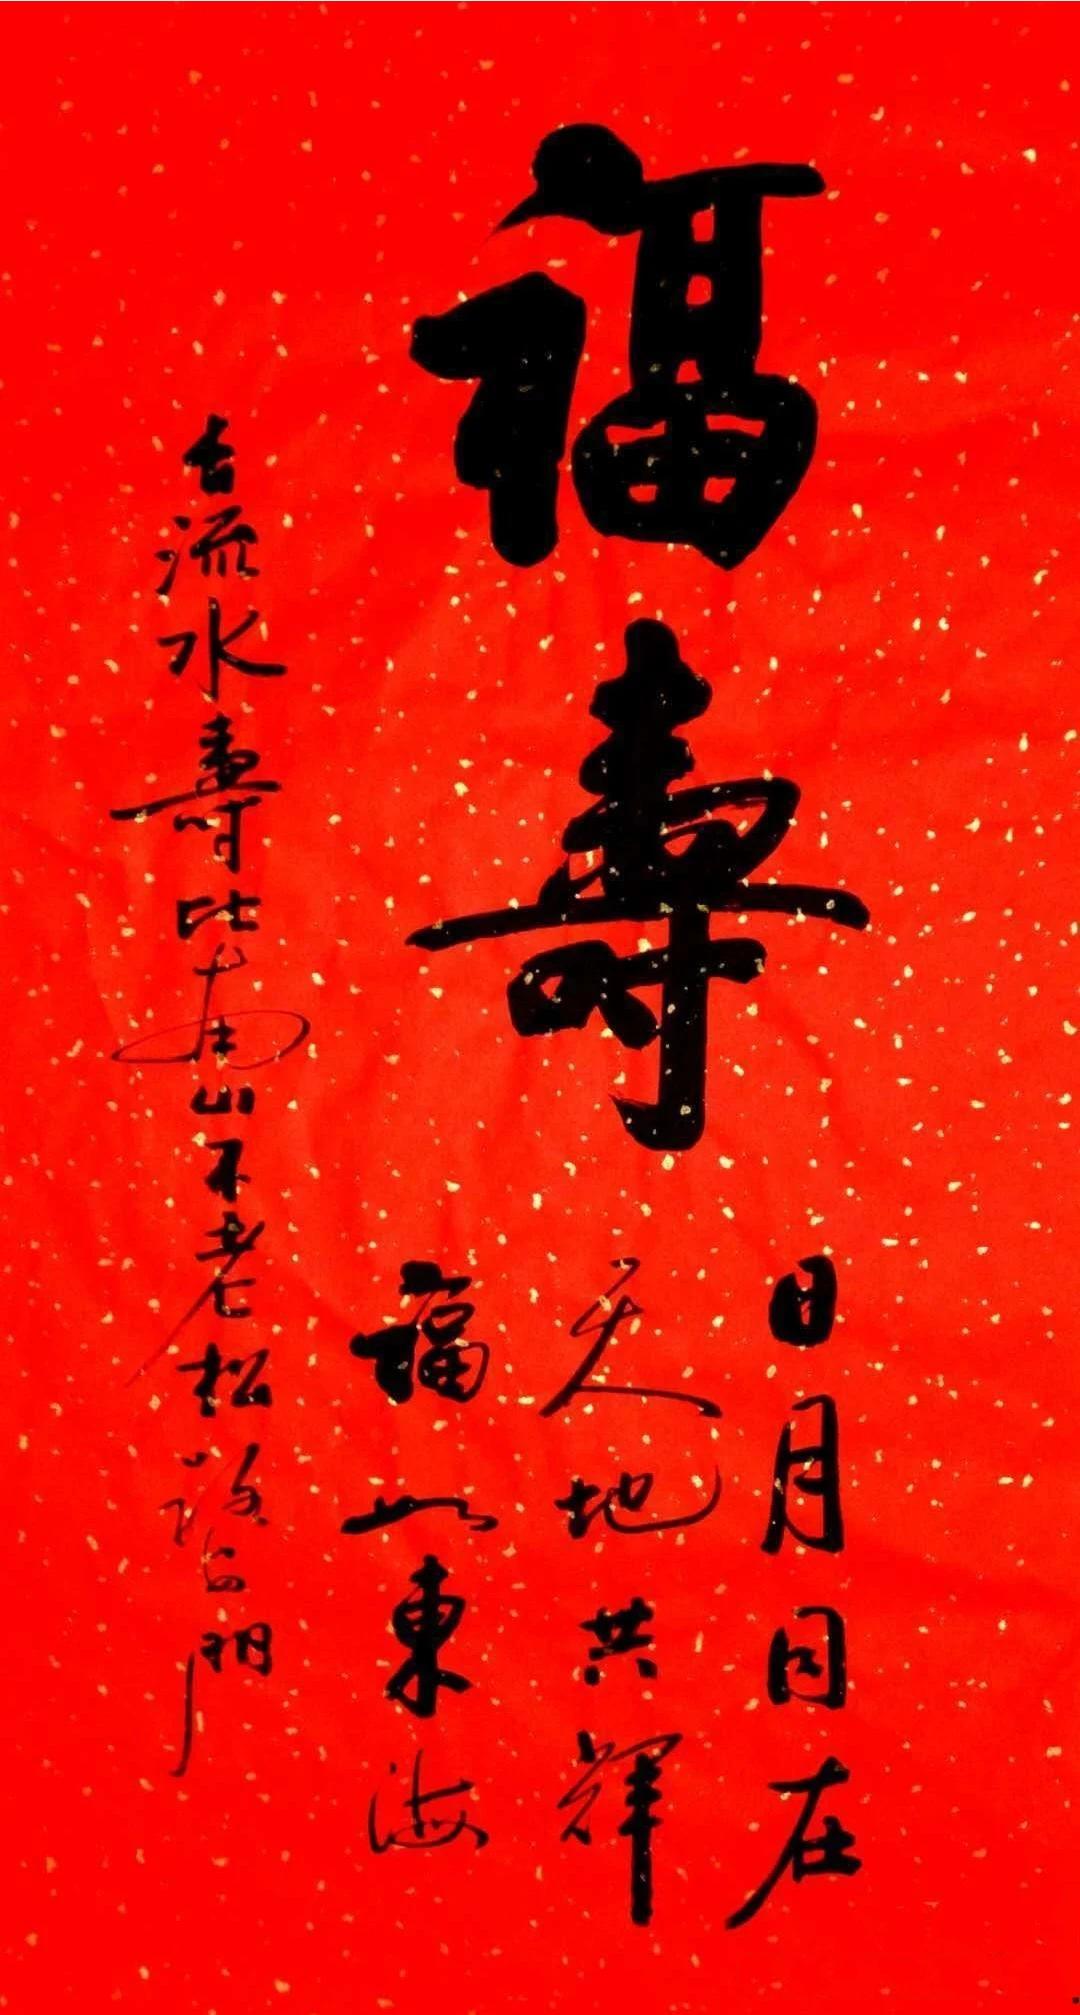 福壽
日月同在
天地共辉
福如東海
長流水壽比南山不老松